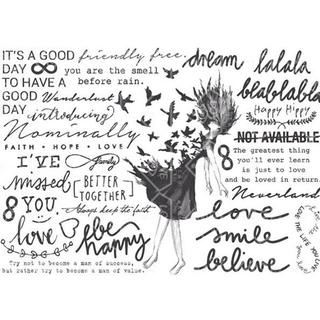 IT'S A GOOD
DAY ∞
TO HAVE A
GOOD
DAY
friendly free,
you are the smell
before rain.
Wanderlust
introducing
Nominally
FAITH • HOPE • LOVE
I'VE
missed
YOU
∞
family
BETTER
TOGETHER
Always keep the faith
love
& be
happy
Try not to become a man of success,
but rather try to become a man of value.
dream
lalala
blablablabla
Happy Hippy
NOT AVAILABLE
The greatest thing
you'll ever learn
is just to love
and be loved in return.
Neverland
love
smile
believe
LOVE THE LIFE YOU